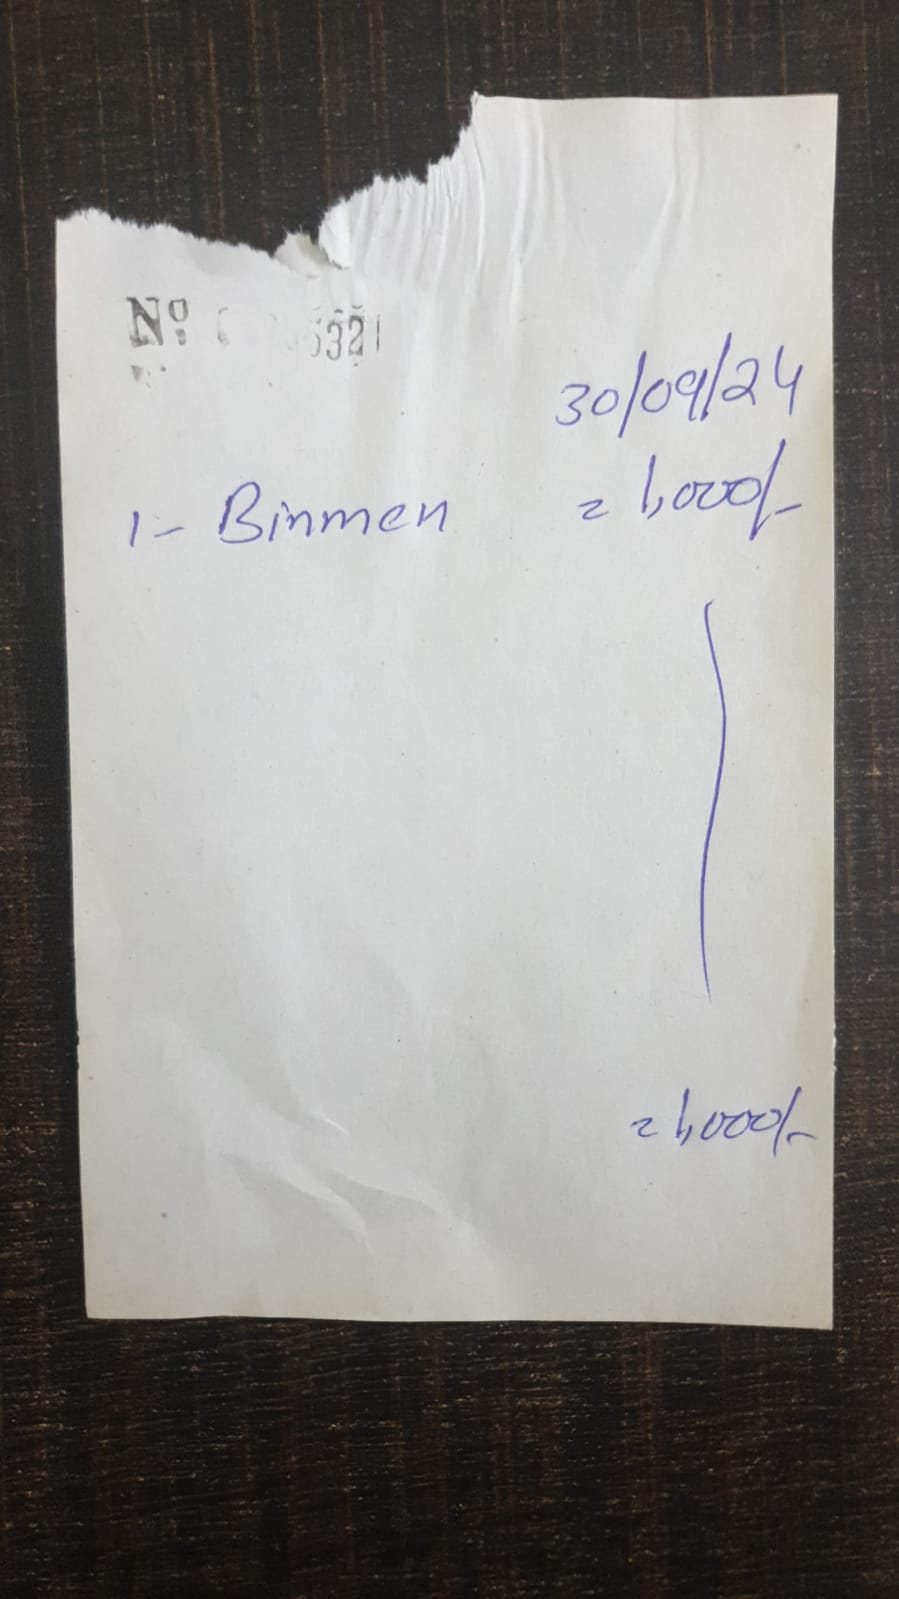 Nº 5321
30/09/24
1- Binmen = 1,000/-
= 1,000/-